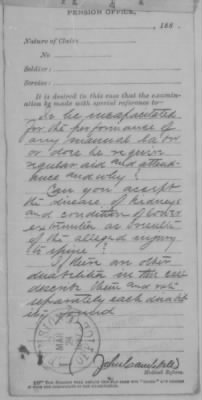 PENSION OFFICE,
, 188 .
Nature of Claim:
No.
Soldier:
Service:
It is desired in this case that the examin-
ation be made with special reference to—
Is he incapacitated
for the performance of
any manual labor
or does he require
regular aid and attend-
ance and why?
Can you accept
the disease of kidneys
and condition of
extremities as results
of the alleged injury
to spine?
If there are other
disabilities in this case
describe them and rate
separately each disabil
ity found
John Campbell
Medical Referee.